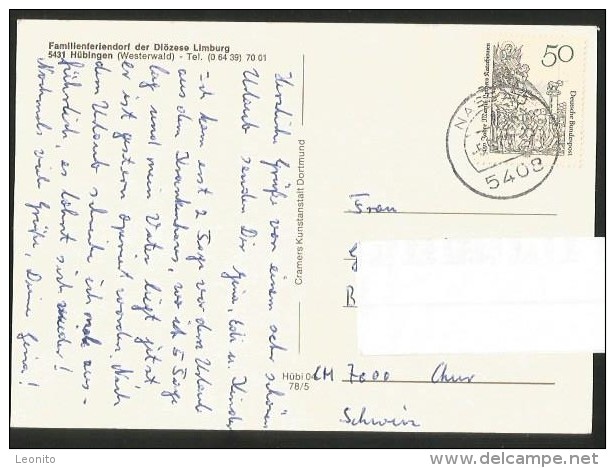 Familienferiendorf der Diözese Limburg
5431 Hübingen (Westerwald) - Tel. (0 64 39) 70 01
Herzliche Grüße von einem sehr schönen
Urlaub senden Dir Gina, u. Kinder
Ich kam erst 2 Tage vor dem Urlaub
aus dem Krankenhaus, wo ich 5 Tage
lag und mein Vater liegt jetzt
er ist gestern operiert worden. Nach
dem Urlaub schreibe ich mehr aus-
führlich, es lohnt sich wieder!
Nochmals viele Grüße, Deine Gina!
Cramers Kunstanstalt Dortmund
Hübi 04
78/5
50
Deutsche Bundespost
5408
Frau
B
CH 7000 Chur
Schweiz
Leonito
delcampe.net